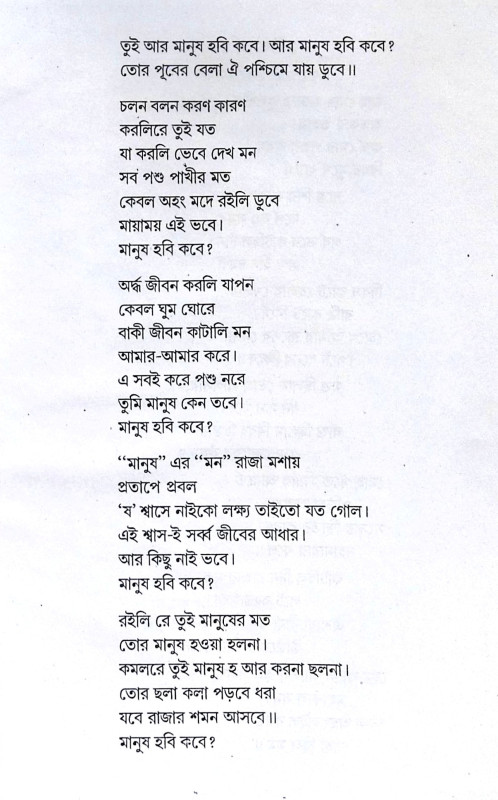 তুই আর মানুষ হবি কবে। আর মানুষ হবি কবে?
তোর পূবের বেলা ঐ পশ্চিমে যায় ডুবে॥
চলন বলন করণ কারণ
করলিরে তুই যত
যা করলি ভেবে দেখ মন
সব পশু পাখীর মত
কেবল অহং মদে রইলি ডুবে
মায়াময় এই ভবে।
মানুষ হবি কবে?
অর্দ্ধ জীবন করলি যাপন
কেবল ঘুম ঘোরে
বাকী জীবন কাটালি মন
আমার-আমার করে।
এ সবই করে পশু নরে
তুমি মানুষ কেন তবে।
মানুষ হবি কবে?
“মানুষ” এর “মন” রাজা মশায়
প্রতাপে প্রবল
‘ষ’ শ্বাসে নাইকো লক্ষ্য তাইতো যত গোল।
এই শ্বাস-ই সর্ব্ব জীবের আধার।
আর কিছু নাই ভবে।
মানুষ হবি কবে?
রইলি রে তুই মানুষের মত
তোর মানুষ হওয়া হলনা।
কমলরে তুই মানুষ হ আর করনা ছলনা।
তোর ছলা কলা পড়বে ধরা
যবে রাজার শমন আসবে॥
মানুষ হবি কবে?